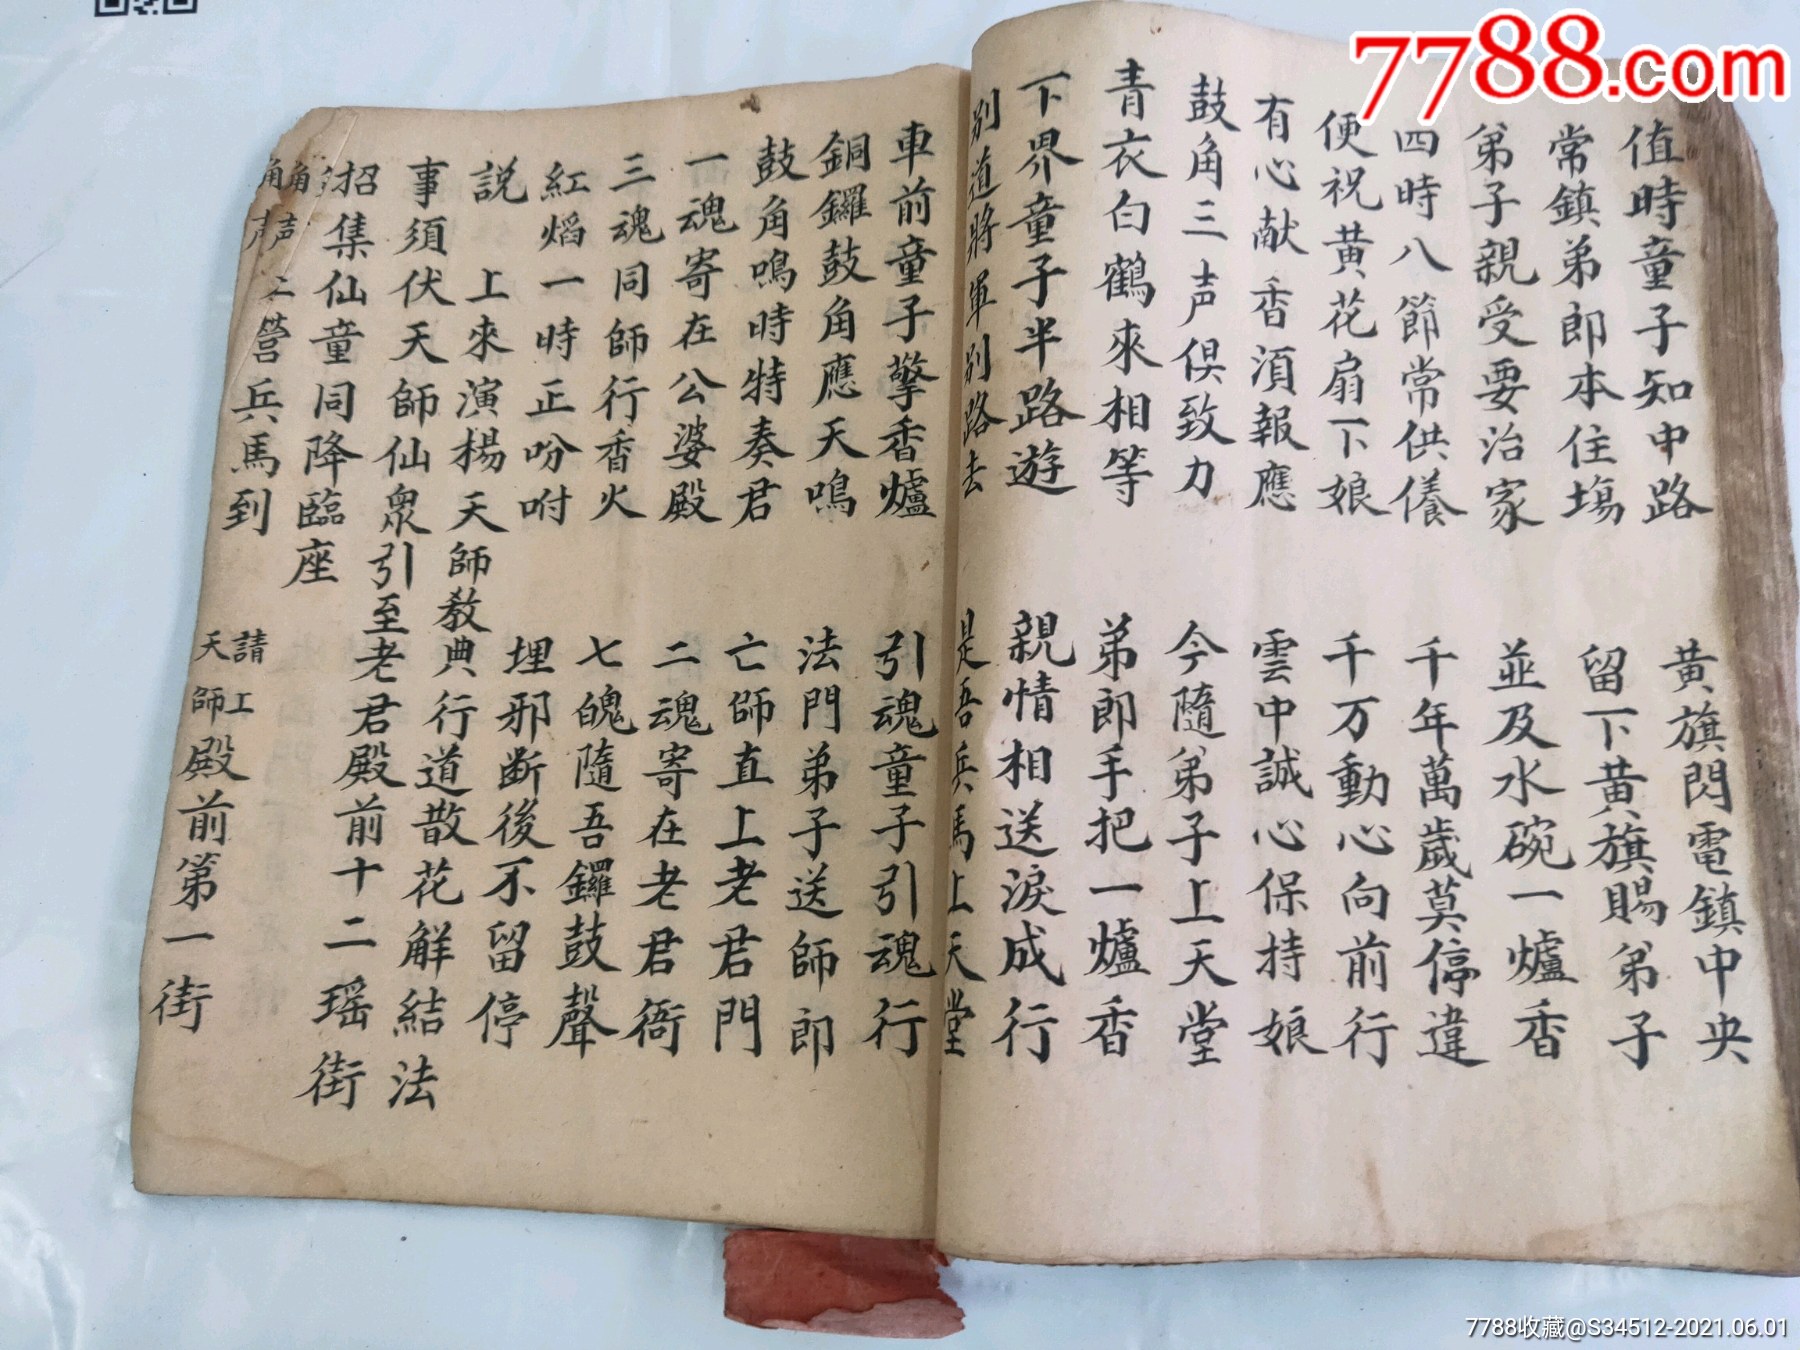 7788.com
值時童子知中路 黃旗閃電鎮中央
常鎮弟郎本住塲 留下黃旗賜弟子
弟子親受要治家 並及水碗一爐香
四時八節常供養 千年萬歲莫停違
便祝黃花扇下娘 千万動心向前行
有心献香須報應 雲中誠心保持娘
鼓角三声俱致力 今隨弟子上天堂
青衣白鶴來相等 弟郎手把一爐香
下界童子半路遊 親情相送淚成行
別道將軍別路去 是吾兵馬上天堂
車前童子擎香爐 引魂童子引魂行
銅鑼鼓角應天鳴 法門弟子送師郎
鼓角鳴時特奏君 亡師直上老君門
一魂寄在公婆殿 二魂寄在老君衙
三魂同師行香火 七魄隨吾鑼鼓聲
紅焰一時正吩咐 埋邪断後不留停
説 上來演楊天師教典行道散花解結法
事須伏天師仙衆引至老君殿前十二瑶街
招集仙童同降臨座
角声
角声 營兵馬到 請上天師殿前第一街
7788收藏@S34512-2021.06.01